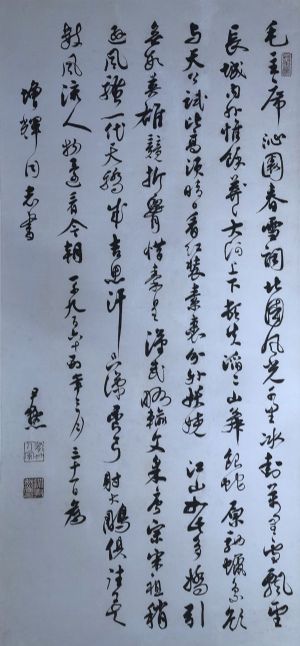 毛主席沁園春雪詞北國風光千里冰封萬里雪飄望
長城內外惟餘莽莽大河上下頓失滔々山舞銀蛇原馳蠟象欲
與天公試比高須晴日看紅裝素裹分外妖嬈 江山如此多嬌引
無數英雄競折腰惜秦皇漢武略輸文采唐宗宋祖稍
遜風騷一代天驕成吉思汗只識彎弓射大鵰俱往矣
數風流人物還看今朝 一千九百六十五年 月三十一日為
增輝同志書
尹默